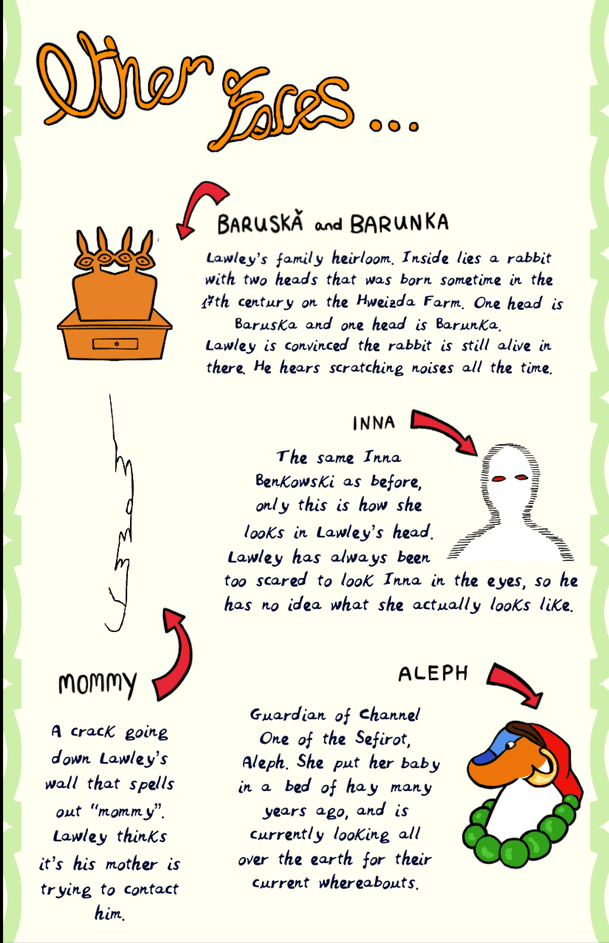 Other Faces...
BARUSKǍ and BARUNKA
Lawley's family heirloom. Inside lies a rabbit
with two heads that was born sometime in the
17th century on the Hweizda Farm. One head is
Baruska and one head is Barunka.
Lawley is convinced the rabbit is still alive in
there. He hears scratching noises all the time.
INNA
The same Inna
Benkowski as before,
only this is how she
looks in Lawley's head.
Lawley has always been
too scared to look Inna in the eyes, so he
has no idea what she actually looks like.
mommy
MOMMY
A crack going
down Lawley's
wall that spells
out "mommy".
Lawley thinks
it's his mother is
trying to contact
him.
ALEPH
Guardian of Channel
One of the Sefirot,
Aleph. She put her baby
in a bed of hay many
years ago, and is
currently looking all
over the earth for their
current whereabouts.